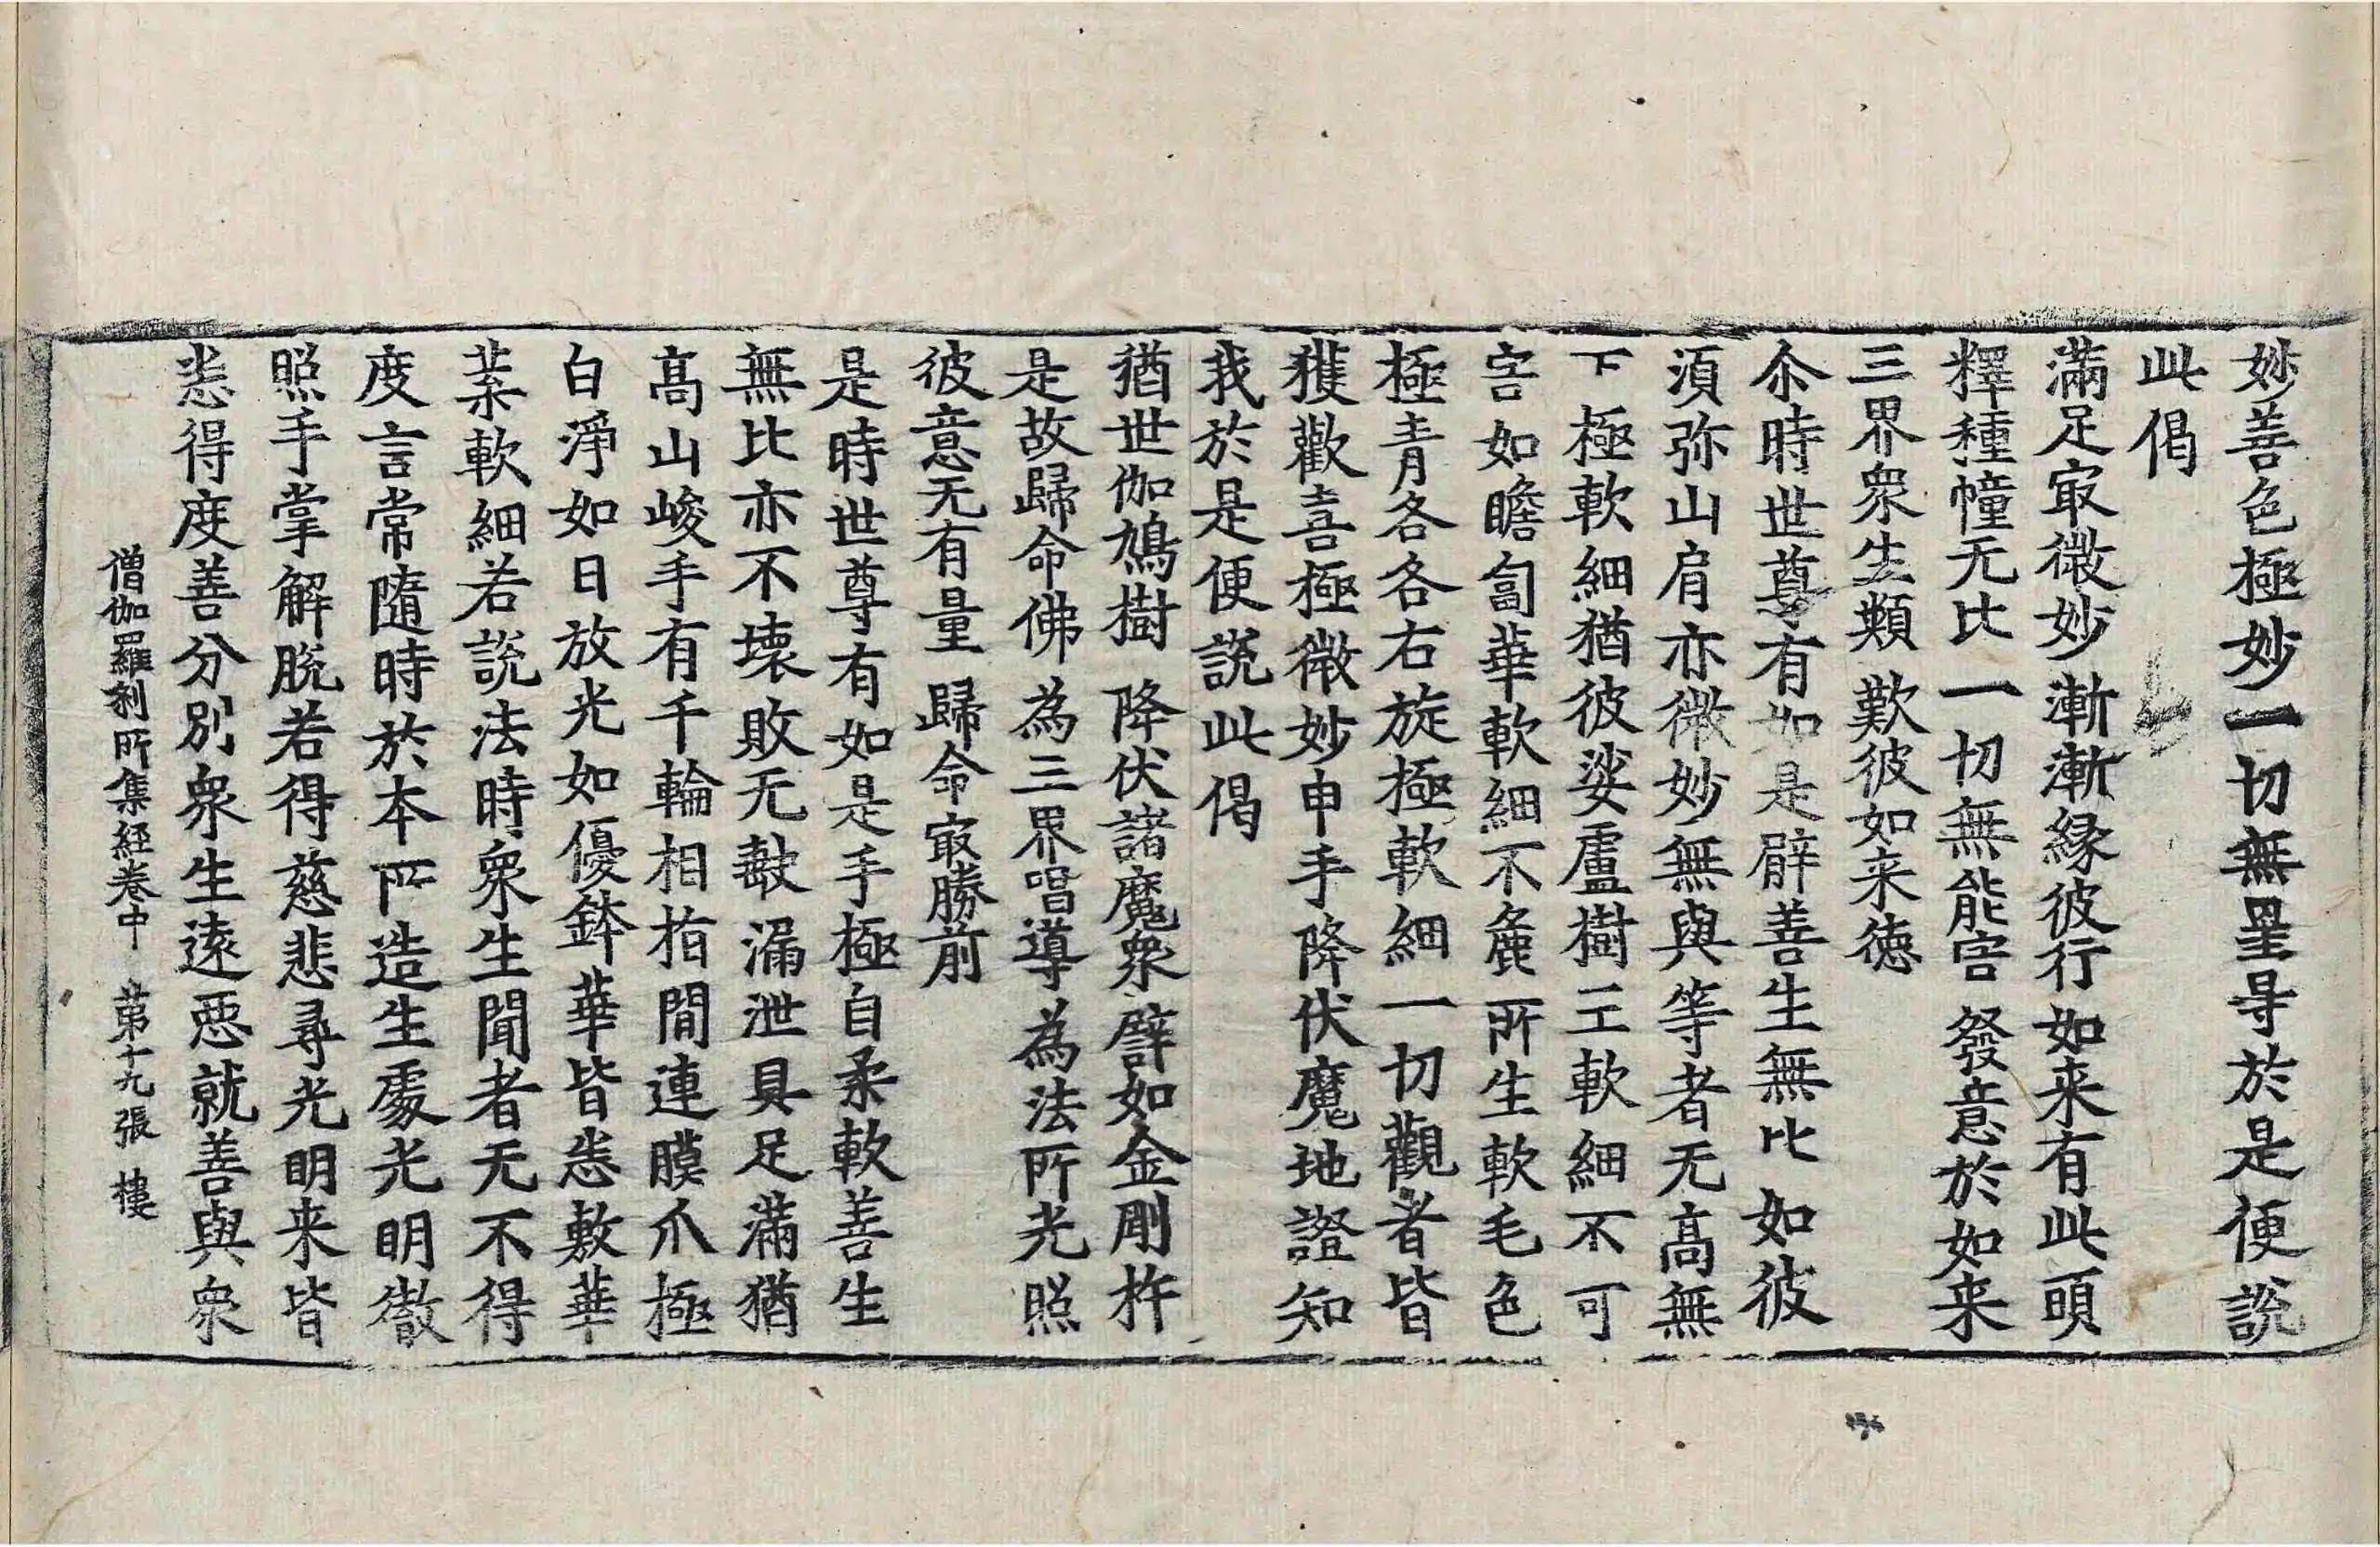 妙善色極妙一切無星㝵於是便說
此偈
滿足冣微妙 漸漸緣彼行 如来有此頭
釋種幢无比 一切無能害 發意於如来
三界衆生類 歎彼如来德
尒時世尊有如是臂善生無比如彼
湏弥山肩亦微妙無與等者无高無
下極軟細猶彼娑盧樹王軟細不可
害如瞻匐華軟細不麁所生軟毛色
極青各各右旋極軟細一切觀者皆
獲歡喜極微妙申手降伏魔地證知
我於是便說此偈
猶世伽鳩樹 降伏諸魔衆 譬如金剛杵
是故歸命佛 為三界唱導 為法所光照
彼意无有量 歸命冣勝前
是時世尊有如是手極自柔軟善生
無比亦不壞敗无㲉漏泄具足滿猶
高山峻手有千輪相指間連膜爪極
白淨如日放光如優鉢華皆悉敷華
葉軟細若說法時衆生聞者无不得
度言常隨時於本所造生處光明徹
照手掌解脫若得慈悲尋光明来皆
悉得度善分別衆生逺惡就善與衆
僧伽羅剎所集經卷中 第十九張 樓